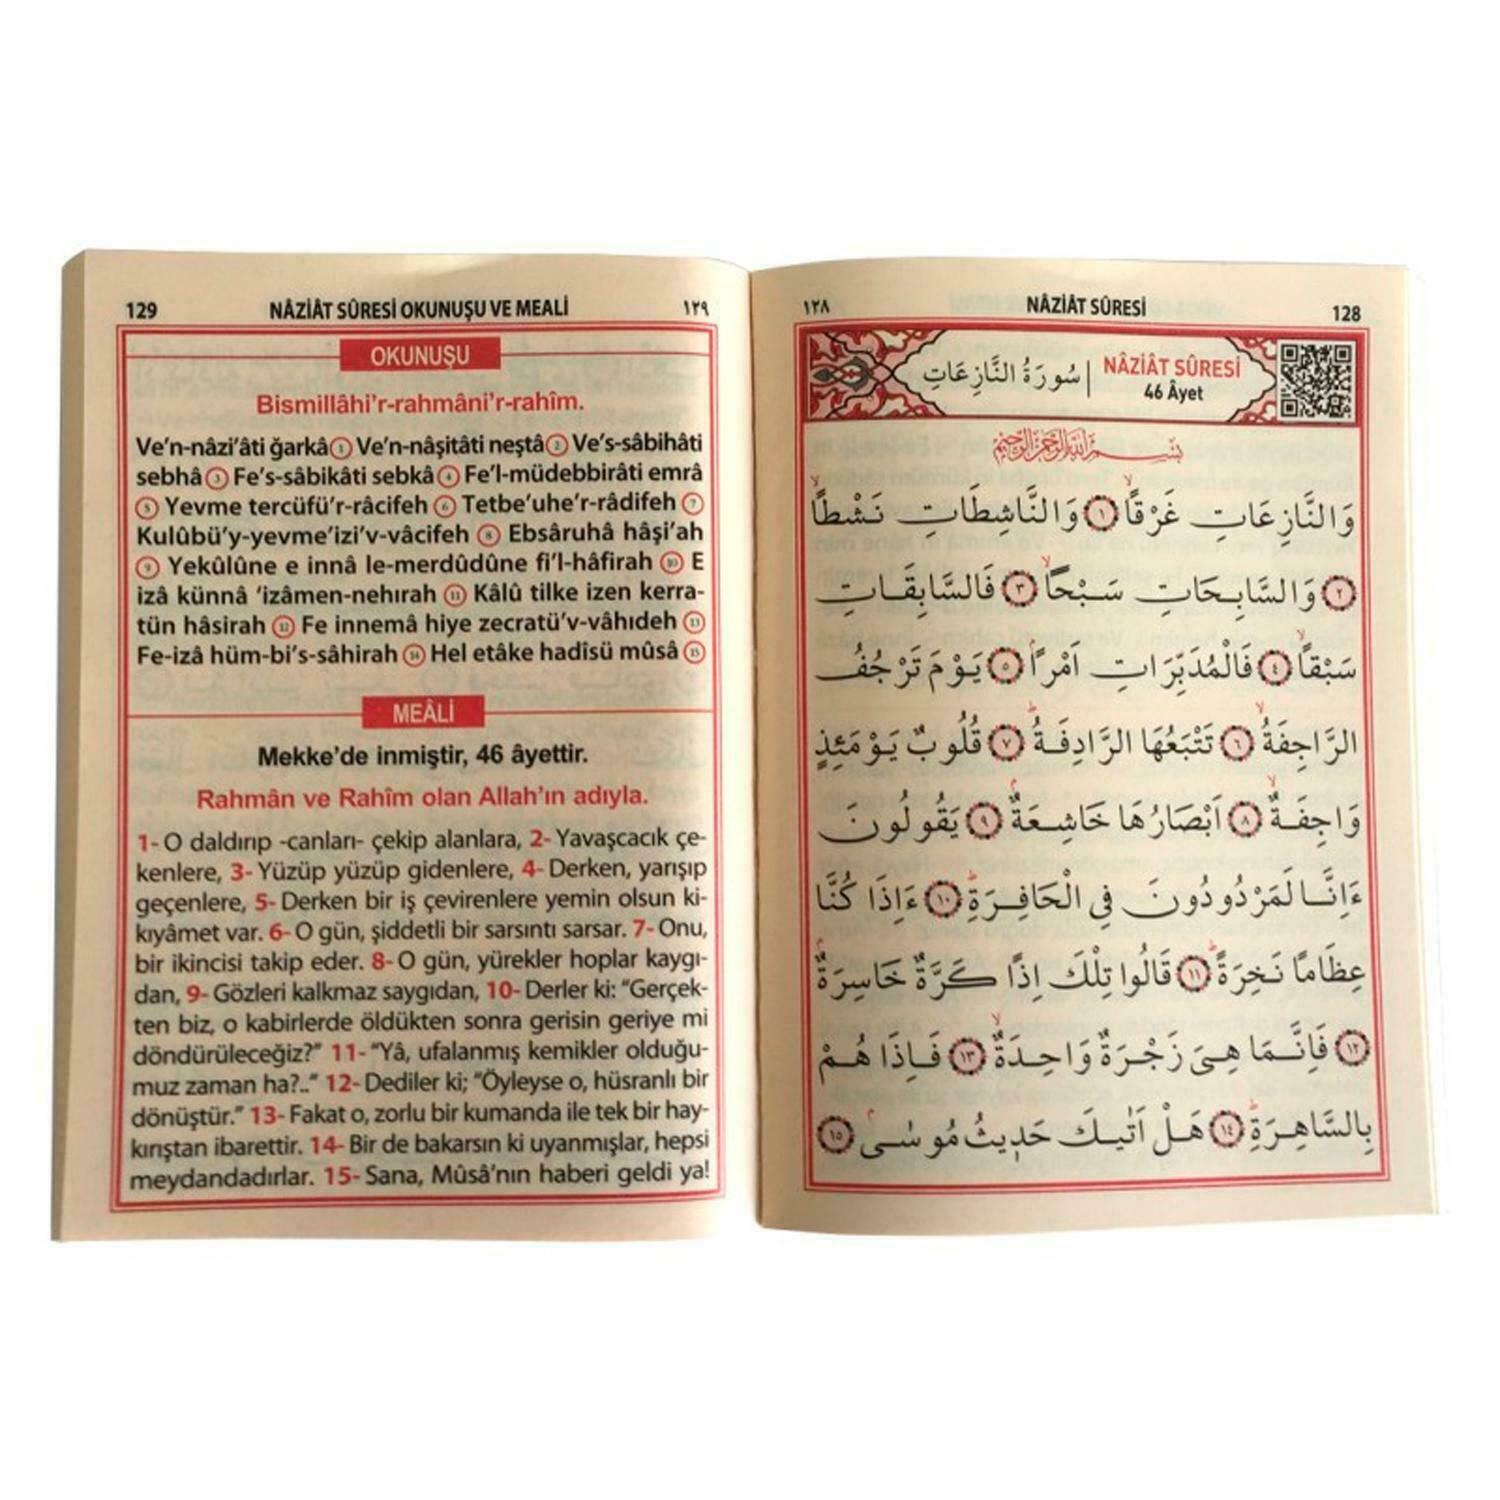 129 NÂZİÂT SÛRESİ OKUNUŞU VE MEALİ ١٢٩
OKUNUŞU
Bismillâhi’r-rahmâni’r-rahîm.
Ve’n-nâzi’âti ğarkâ① Ve’n-nâşitâti neştâ② Ve’s-sâbihâti
sebhâ③ Fe’s-sâbikâti sebkâ④ Fe’l-müdebbirâti emrâ
⑤ Yevme tercüfü’r-râcifeh ⑥ Tetbe’uhe’r-râdifeh ⑦
Kulûbü’y-yevme’izi’v-vâcifeh ⑧ Ebsâruhâ hâşi’ah
⑨ Yekûlûne e innâ le-merdûdûne fi’l-hâfirah ⑩ E
izâ künnâ ‘izâmen-nehırah ⑪ Kâlû tilke izen kerra-
tün hâsirah ⑫ Fe innemâ hiye zecratü’v-vâhıdeh ⑬
Fe-izâ hüm-bi’s-sâhirah ⑭ Hel etâke hadîsü mûsâ ⑮
MEÂLİ
Mekke’de inmiştir, 46 âyettir.
Rahmân ve Rahîm olan Allah’ın adıyla.
1- O daldırıp -canları- çekip alanlara, 2- Yavaşcacık çe-
kenlere, 3- Yüzüp yüzüp gidenlere, 4- Derken, yarışıp
geçenlere, 5- Derken bir iş çevirenlere yemin olsun ki-
kıyâmet var. 6- O gün, şiddetli bir sarsıntı sarsar. 7- Onu,
bir ikincisi takip eder. 8- O gün, yürekler hoplar kaygı-
dan, 9- Gözleri kalkmaz saygıdan, 10- Derler ki: “Gerçek-
ten biz, o kabirlerde öldükten sonra gerisin geriye mi
döndürüleceğiz?” 11- “Yâ, ufalanmış kemikler olduğu-
muz zaman ha?..” 12- Dediler ki; “Öyleyse o, hüsranlı bir
dönüştür.” 13- Fakat o, zorlu bir kumanda ile tek bir hay-
kırıştan ibarettir. 14- Bir de bakarsın ki uyanmışlar, hepsi
meydandadırlar. 15- Sana, Mûsâ’nın haberi geldi ya!
١٢٨ NÂZİÂT SÛRESİ 128
سُورَةُ النَّازِعَاتِ
NÂZİÂT SÛRESİ
46 Âyet
بِسْمِ اللّٰهِ الرَّحْمٰنِ الرَّحِيمِ
وَالنَّازِعَاتِ غَرْقاًۙ ١ وَالنَّاشِطَاتِ نَشْطاًۙ
٢ وَالسَّابِحَاتِ سَبْحاًۙ ٣ فَالسَّابِقَاتِ
سَبْقاًۙ ٤ فَالْمُدَبِّرَاتِ اَمْراًۢ ٥ يَوْمَ تَرْجُفُ
الرَّاجِفَةُۙ ٦ تَتْبَعُهَا الرَّادِفَةُۜ ٧ قُلُوبٌ يَوْمَئِذٍ
وَاجِفَةٌۙ ٨ اَبْصَارُهَا خَاشِعَةٌۢ ٩ يَقُولُونَ
ءَاِنَّا لَمَرْدُودُونَ فِي الْحَافِرَةِۜ ١٠ ءَاِذَا كُنَّا
عِظَامًا نَخِرَةًۜ ١١ قَالُوا تِلْكَ اِذًا كَرَّةٌ خَاسِرَةٌۢ
١٢ فَاِنَّمَا هِيَ زَجْرَةٌ وَاحِدَةٌۙ ١٣ فَاِذَا هُمْ
بِالسَّاهِرَةِۜ ١٤ هَلْ اَتٰيكَ حَدِيثُ مُوسٰىۢ ١٥